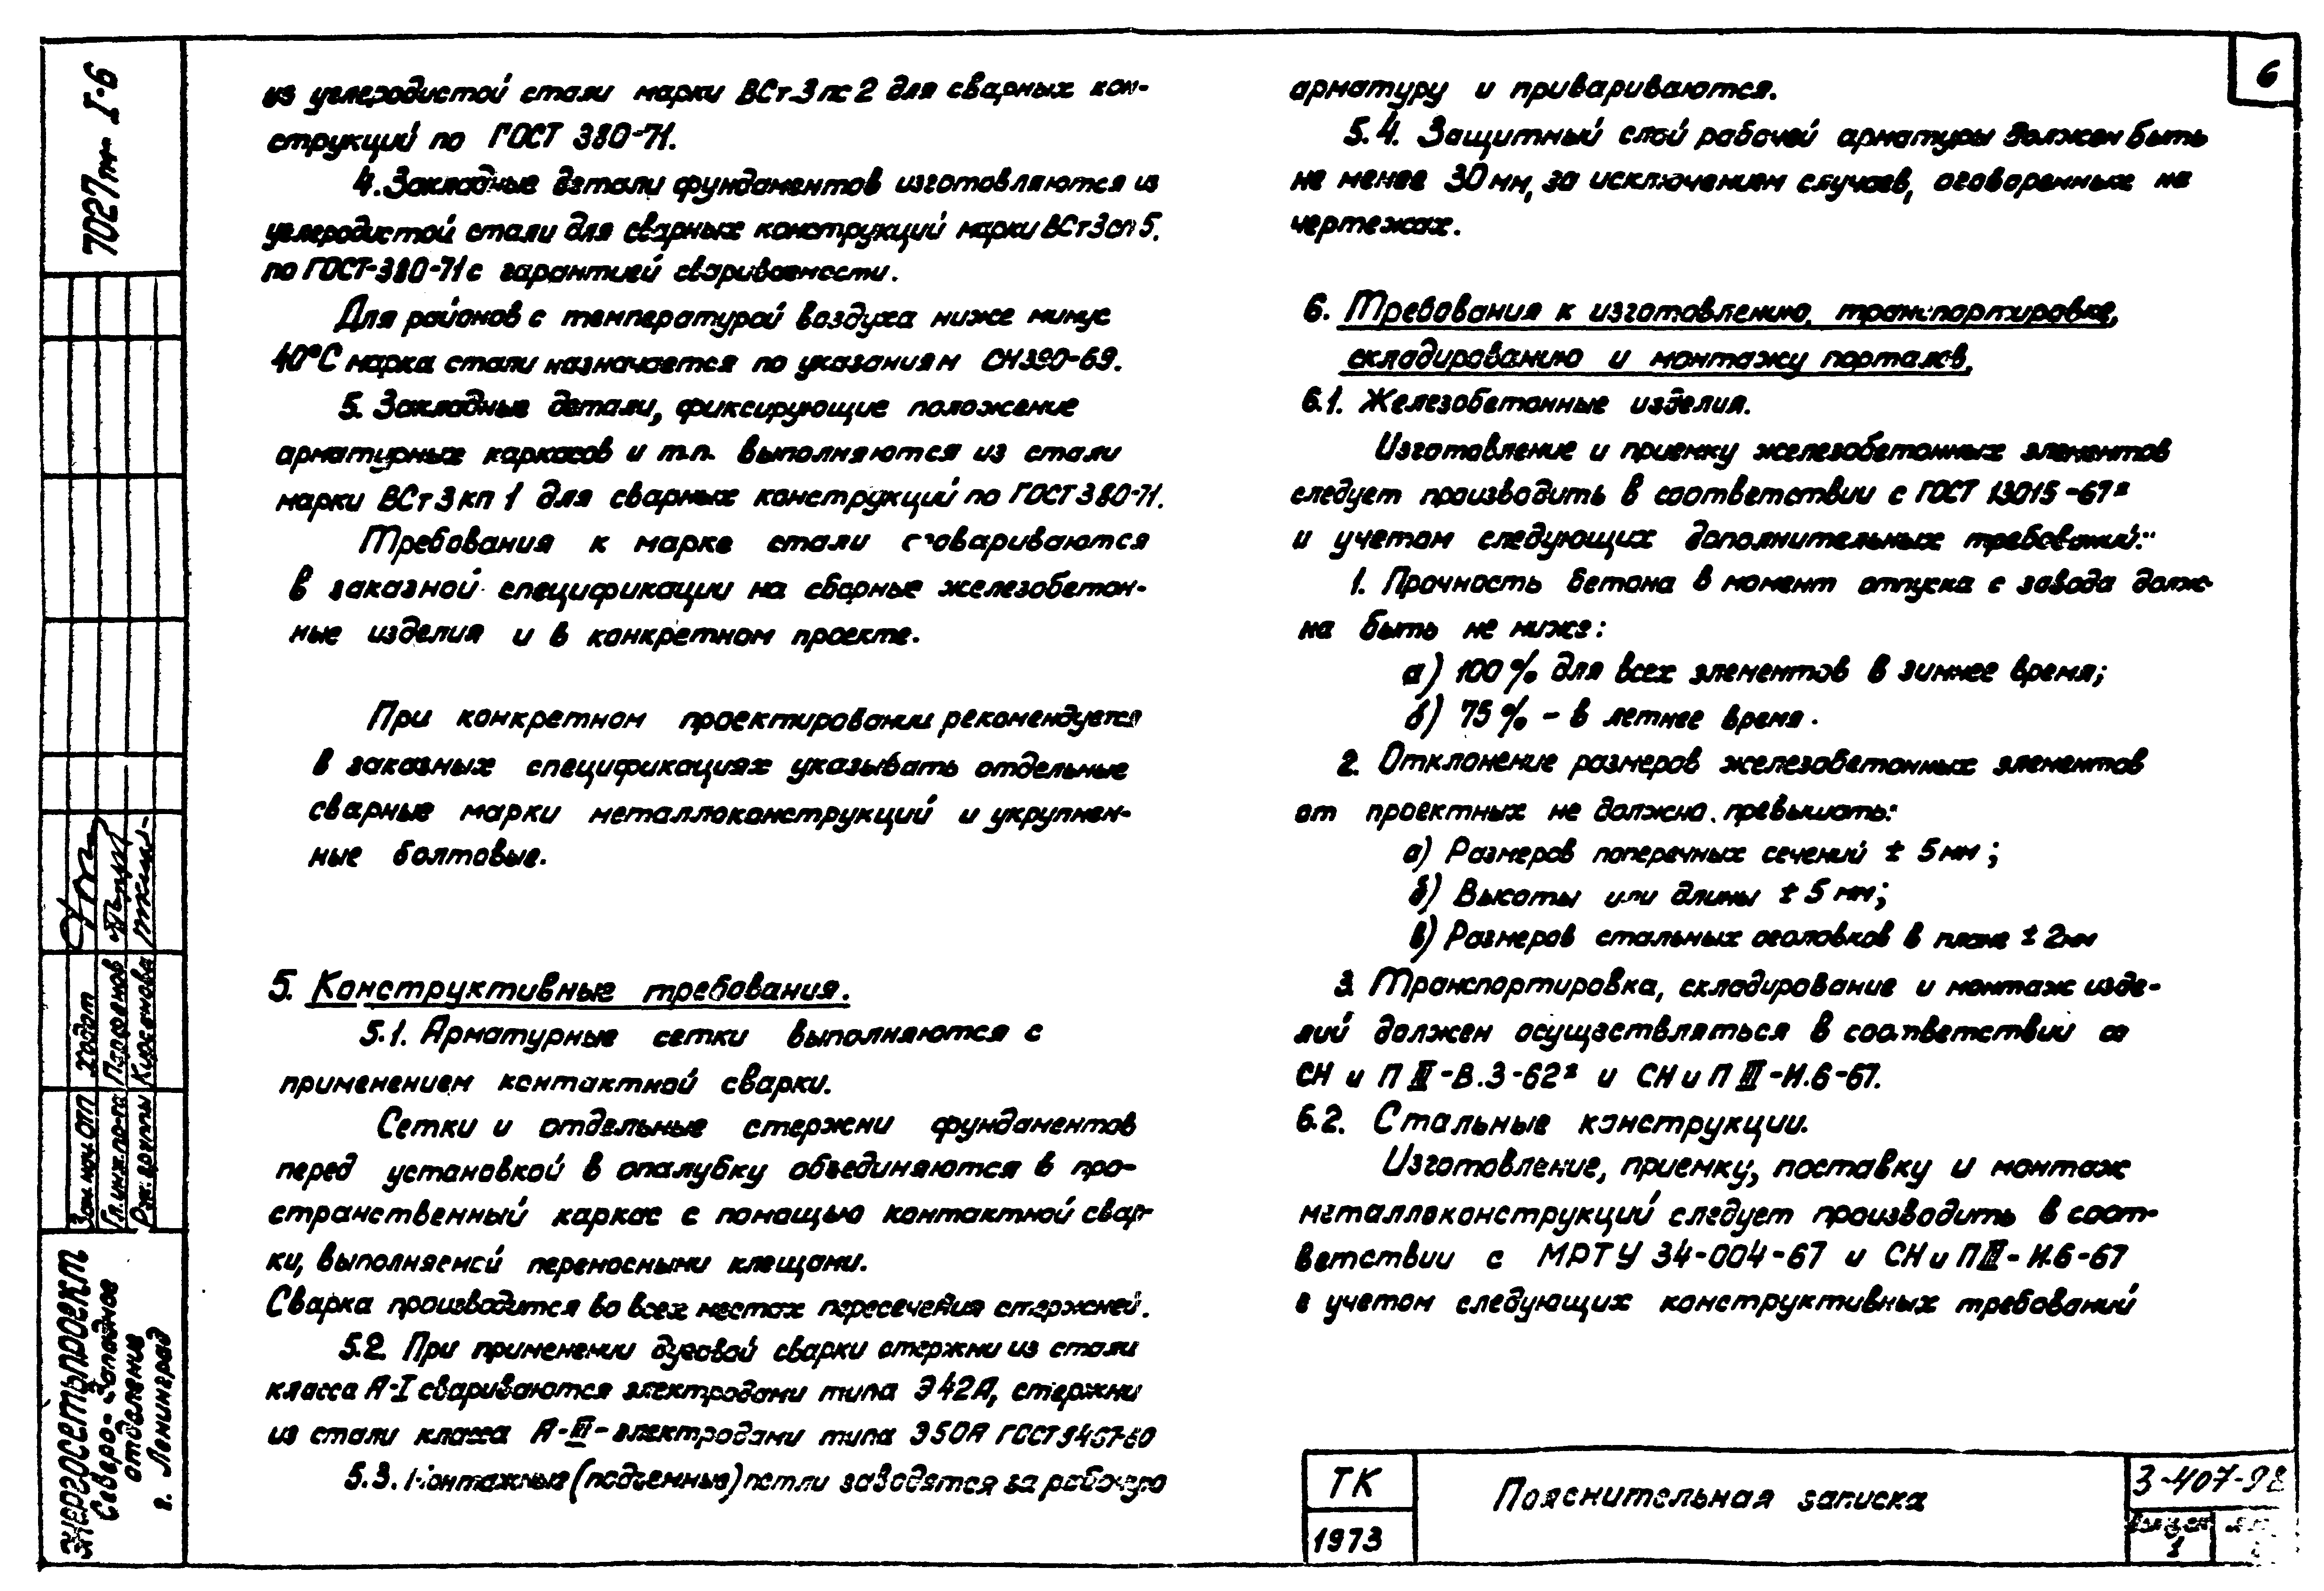 6
из углеродистой стали марки ВСт.3пс2 для сварных кон-
струкций по ГОСТ 380-71.
4. Закладные детали фундаментов изготовляются из
углеродистой стали для сварных конструкций марки ВСт3сп5.
по ГОСТ-380-71 с гарантией свариваемости.
Для районов с температурой воздуха ниже минус
40°С марка стали назначается по указаниям СН390-69.
5. Закладные детали, фиксирующие положение
арматурных каркасов и т.п. выполняются из стали
марки ВСт3кп1 для сварных конструкций по ГОСТ 380-71.
Требования к марке стали оговариваются
в заказной спецификации на сборные железобетон-
ные изделия и в конкретном проекте.
При конкретном проектировании рекомендуется
в заказных спецификациях указывать отдельные
сварные марки металлоконструкций и укрупнен-
ные болтовые.
5. Конструктивные требования.
5.1. Арматурные сетки выполняются с
применением контактной сварки.
Сетки и отдельные стержни фундаментов
перед установкой в опалубку объединяются в про-
странственный каркас с помощью контактной свар-
ки, выполняемой переносными клещами.
Сварка производится во всех местах пересечения стержней.
5.2. При применении дуговой сварки стержни из стали
класса А-I свариваются электродами типа Э42А, стержни
из стали класса А-III-электродами типа Э50А ГОСТ 9467-60
5.3. Монтажные (подъемные) петли заводятся за рабочую
арматуру и привариваются.
5.4. Защитный слой рабочей арматуры должен быть
не менее 30мм, за исключением случаев, оговоренных на
чертежах.
6. Требования к изготовлению, транспортировке,
складированию и монтажу порталов.
6.1. Железобетонные изделия.
Изготовление и приемку железобетонных элементов
следует производить в соответствии с ГОСТ 13015-67*
и учетом следующих дополнительных требований:
1. Прочность бетона в момент отпуска с завода долж-
на быть не ниже:
а) 100% для всех элементов в зимнее время;
б) 75% - в летнее время.
2. Отклонение размеров железобетонных элементов
от проектных не должно превышать:
а) Размеров поперечных сечений ± 5мм;
б) Высоты или длины ± 5мм;
в) Размеров стальных оголовков в плане ± 2мм
3. Транспортировка, складирование и монтаж изде-
лий должен осуществляться в соответствии со
СНиП III-В.3-62* и СНиП III-И.6-67.
6.2. Стальные конструкции.
Изготовление, приемку, поставку и монтаж
металлоконструкций следует производить в соот-
ветствии с МРТУ 34-004-67 и СНиП III-И.6-67
с учетом следующих конструктивных требований
7027тм-I-6
Зам.нач.ОТП Ходот
Гл.инж.пр-та Парфенов
Рук.группы Курсанова
Энергосетьпроект
Северо-Западное
отделение
г. Ленинград
ТК
1973
Пояснительная записка
3-407-98
Выпуск
1